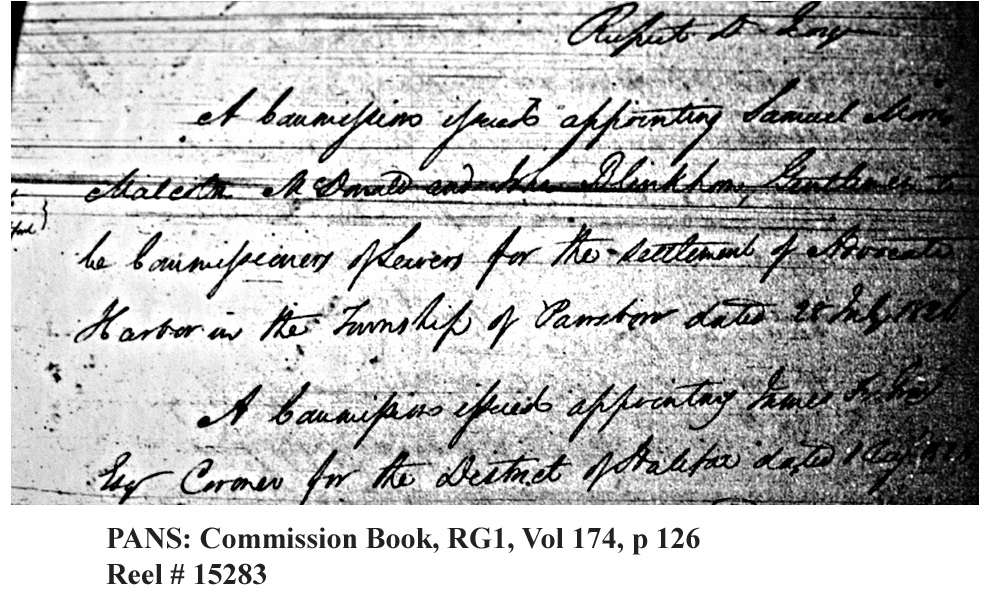 Rupert D George
A Commission issued appointing Samuel Morris
Malcolm McDonald and John Blinkhorn, Gentlemen to
be Commissioners of Sewers for the settlement of Advocate
Harbor in the Township of Parrsboro dated 28 July 1826
A Commission issued appointing James
Esqr Coroner for the District of Halifax dated 1 Augt
PANS: Commission Book, RG1, Vol 174, p 126
Reel # 15283